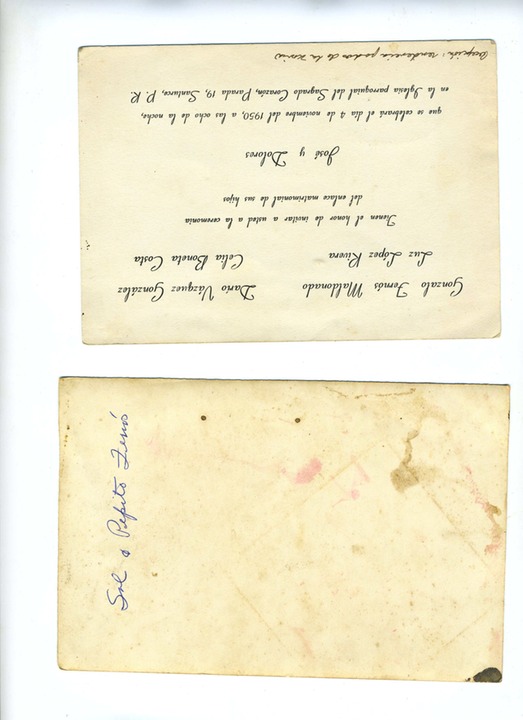 Gonzalo Fernós Maldonado Darío Vázquez González
Luz López Rivera Celia Boneta Costa
Tienen el honor de invitar a usted a la ceremonia
del enlace matrimonial de sus hijos
José y Dolores
que se celebrará el día 4 de noviembre del 1950, a las ocho de la noche,
en la Iglesia parroquial del Sagrado Corazón, Parada 19, Santurce, P. R.
residencia padres de la novia)
Sol & Pepito Fernós